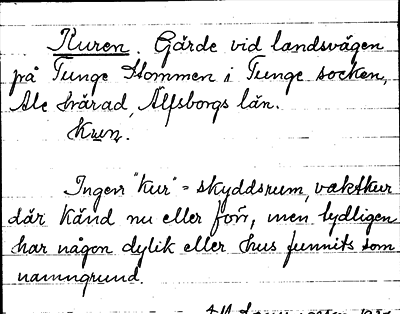 Kuren. Gärde vid landsvägen
på Tunge Hommen i Tunge socken,
Ale härad, Älfsborgs län.
Kurn.
Ingen "kur" = skyddsrum, vaktkur
där känd nu eller förr, men tydligen
har någon dylik eller hus funnits som
namngrund.